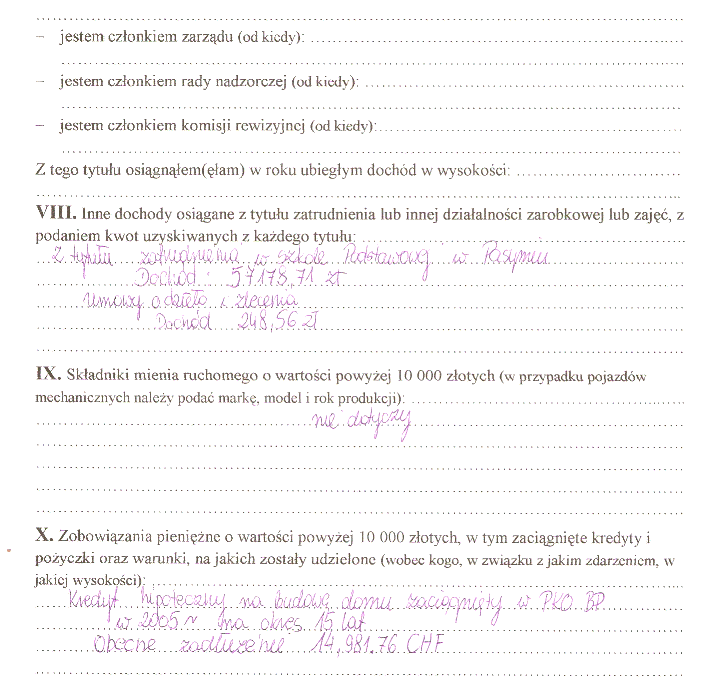 – jestem członkiem zarządu (od kiedy):
– jestem członkiem rady nadzorczej (od kiedy):
– jestem członkiem komisji rewizyjnej (od kiedy):
Z tego tytułu osiągnąłem(ęłam) w roku ubiegłym dochód w wysokości:
VIII. Inne dochody osiągane z tytułu zatrudnienia lub innej działalności zarobkowej lub zajęć, z
podaniem kwot uzyskiwanych z każdego tytułu:
Z tytułu zatrudnienia w Szkole Podstawowej w Pasymiu
Dochód : 57178,71 zł
Umowy o dzieło i zlecenia
Dochód 248,56 zł
IX. Składniki mienia ruchomego o wartości powyżej 10 000 złotych (w przypadku pojazdów
mechanicznych należy podać markę, model i rok produkcji):
nie dotyczy
X. Zobowiązania pieniężne o wartości powyżej 10 000 złotych, w tym zaciągnięte kredyty i
pożyczki oraz warunki, na jakich zostały udzielone (wobec kogo, w związku z jakim zdarzeniem, w
jakiej wysokości):
Kredyt hipoteczny na budowę domu zaciągnięty w PKO BP
w 2005 r na okres 15 lat
Obecne zadłużenie 14,981.76 CHF